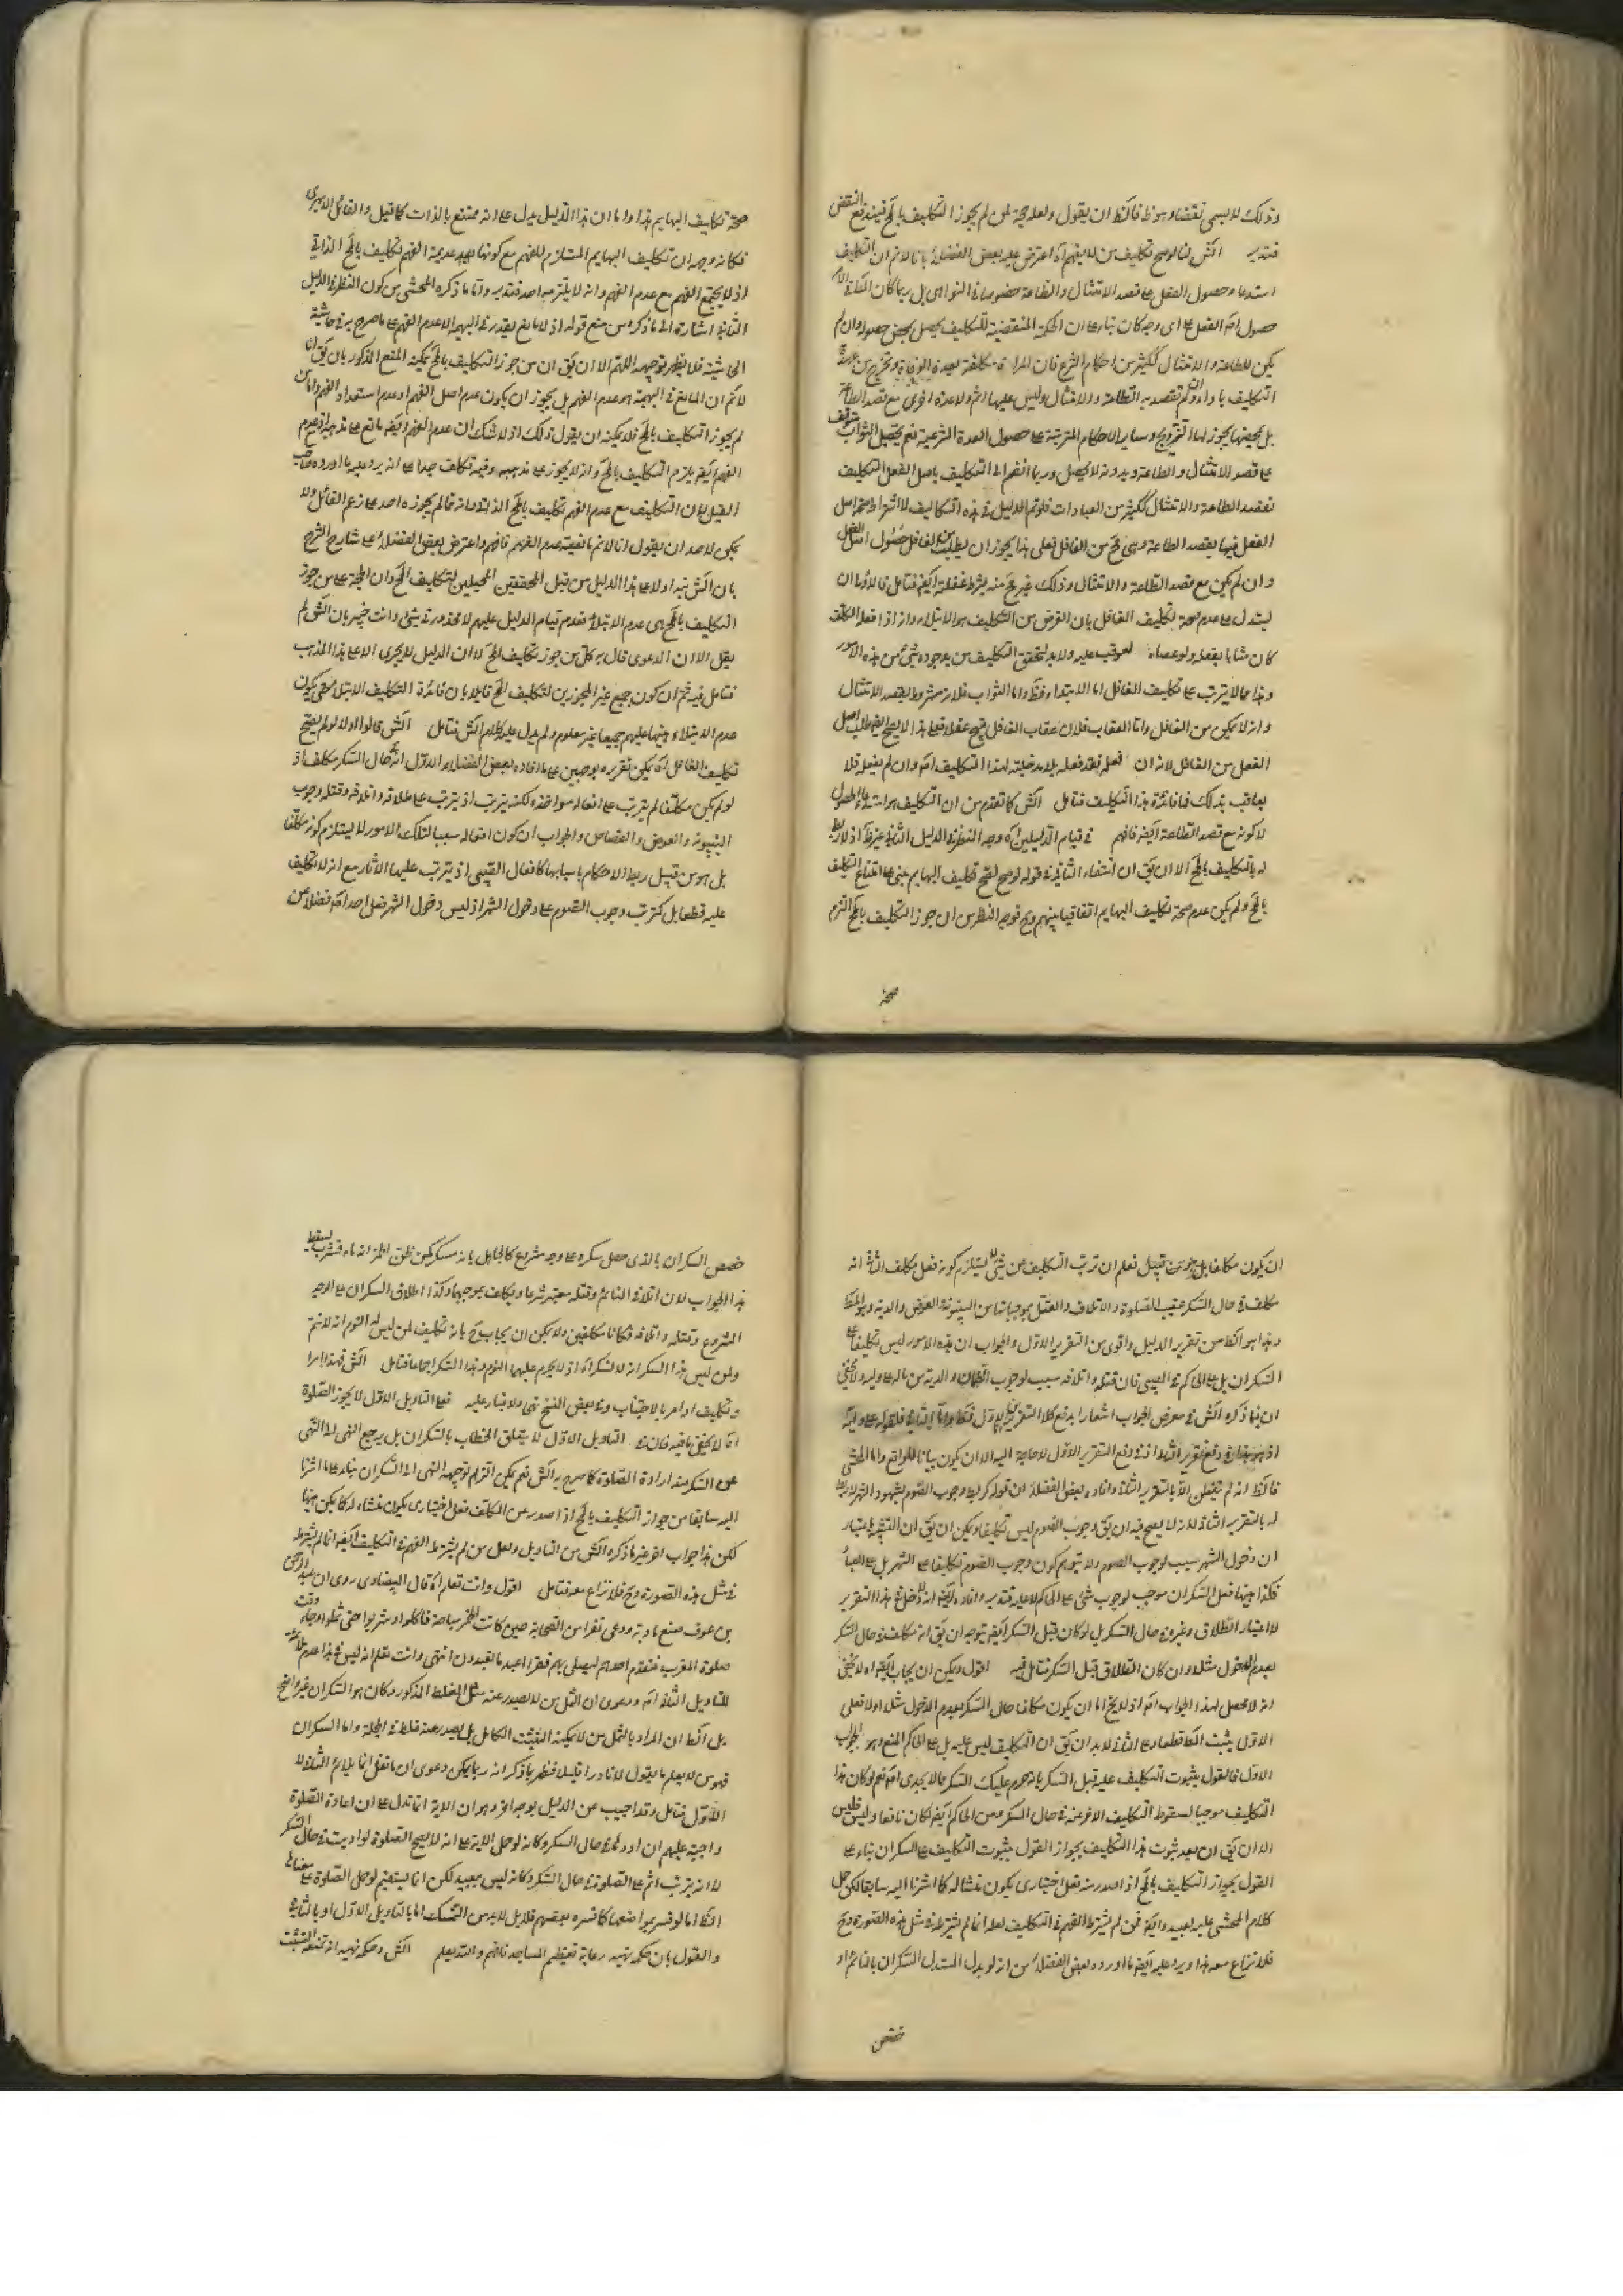 وذلك لا يسمى نقضا وهو ظ فالظ ان يقول ولعله حجة لمن لم يجوز التكليف بالمح فيندفع النقض
فتدبر الش لنا لو صح تكليف من لا يفهم آه اعترض عليه بعض الفضلاء بانا لانم ان التكليف
استدعاء حصول الفعل على قصد الامتثال والطاعة خصوصا في النواهى بل ربما كان
حصول الفعل على اى وجه كان بناء على ان الحكمة المقتضية للتكليف يحصل بمحض حصوله وان لم
يكن للطاعة والامتثال ككثير من احكام الشرع فان المراة مكلفة بعدة الوفاة وتخرج من عهدة
التكليف بها وان لم تقصد به الطاعة والامتثال وليس عليها اثم ولا عدة اخرى مع قصد الطاعة
بل بمضيها يجوز لها التزويج وساير الاحكام المترتبة على حصول العدة الشرعية نعم تحصيل الثواب متوقف
على قصد الامتثال والطاعة وبدونه لا يحصل وربما انضم الى التكليف باصل الفعل التكليف
بقصد الطاعة والامتثال ككثير من العبادات فلو تم الدليل في هذه التكاليف لاشتراط صحة اصل
الفعل فيها بقصد الطاعة وهى مح من الغافل فعلى هذا يجوز ان يطلب من الغافل حصول الفعل
وان لم يكن مع قصد الطاعة والامتثال وذلك غير مح منه بشرط غفلته ايض فتامل فالاولى ان
يستدل على عدم صحة تكليف الغافل بان الغرض من التكليف هو الابتلاء وانه اذا فعل المكلف
كان مثابا بفعله ولو عصاه لعوقب عليه ولا بد لتحقق التكليف من وجود شئ من هذه الامور
وهذا مما لا يترتب على تكليف الغافل اما الابتداء فظ واما الثواب فلانه مشروط بقصد الامتثال
وانه لا يمكن من الغافل واما العقاب فلان عقاب الغافل قبيح عقلا فعلى هذا لا يصح ايض طلب اصل
الفعل من الغافل لانه ان فعل فقد فعله بلا مدخلية لهذا التكليف اصلا وان لم يفعله فلا
يعاقب بذلك فما فائدة هذا التكليف فتامل الش كما تقدم من ان التكليف هو استدعاء الحصول
لا كونه مع قصد الطاعة ايض فافهم في قيام الدليلين آه وجه النظر في الدليل الثاني غير ظ اذ لا ربط
له بالتكليف بالمح الا ان يق ان انتفاء الثاني في قوله لو صح لصح تكليف البهايم مبنى على امتناع التكليف
بالمح ولم يكن عدم صحة تكليف البهايم اتفاقيا بينهم وح توجه النظر من ان جوز التكليف بالمح التزم
صحة
صحة تكليف البهايم هذا واما ان هذا الدليل يدل على انه ممتنع بالذات كما قيل والقائل الابهرى
فكانه وجهه ان تكليف البهايم المستلزم للفهم مع كونها عديمة الفهم تكليف بالمح الذاتي
اذ لا يجتمع الفهم مع عدم الفهم وانه لا يلتزمه احد فتدبر واما ما ذكره المحشى من كون النظر في الدليل
الثاني اشارة الى ما ذكره من منع قوله اذ لا مانع يقدر في البهيم الا عدم الفهم على ما صرح به في حاشية
الحاشية فلا يظهر توجيهه اللهم الا ان يق ان من جوز التكليف بالمح يمكنه المنع المذكور بان يق انا
لانم ان المانع في البهيمة هو عدم الفهم بل يجوز ان يكون عدم اصل الفهم او عدم استعداد الفهم واما من
لم يجوز التكليف بالمح فلا يمكنه ان يقول ذلك اذ لا شك ان عدم الفهم ايض مانع على مذهبه اذ مع عدم
الفهم ايض يلزم التكليف بالمح وانه لا يجوز على مذهبه وفيه تكلف جدا على انه يرد عليه ما اورده صاحب
القيل بان التكليف مع عدم الفهم تكليف بالمح الذاتي وانه مما لم يجوزه احد على زعم القائل ولا
يمكن لاحد ان يقول انا لانم مانعية عدم الفهم فافهم واعترض بعض الفضلاء على شارح الشرح
بان الش نبه اولا على هذا الدليل من قبل المحققين المحيلين لتكليف المح وان الحجة على من جوز
التكليف بالمح هى عدم الابتلاء فعدم قيام الدليل عليهم لا محذور في شئ وانت خبير بان الش لم
يقل الا ان الدعوى قال به كل من جوز تكليف المح لا ان الدليل لا يجرى الا على هذا المذهب
فتامل فيه ثم ان كون جميع غير المجوزين لتكليف المح قايلا بان فائدة التكليف الابتلاء حتى يكون
عدم الابتلاء مبنيا عليهم جميعا غير معلوم ولم يدل عليه كلام الش فتامل الش قالوا اولا لو لم يصح
تكليف الغافل آه يمكن تقريره بوجهين على ما افاده بعض الفضلاء الاول انه في حال السكر مكلف اذ
لو لم يكن مكلفا لم يترتب على افعاله مواخذة لكنه يترتب اذ يترتب على طلاقه واتلافه وقتله وجوب
البينونة والعوض والقصاص والجواب ان كون افعاله سببا لتلك الامور لا يستلزم كونه مكلفا
بل هو من قبيل ربط الاحكام باسبابها كافعال الصبى اذ يترتب عليها الآثار مع انه لا تكليف
عليه قطعا بل كترتب وجوب الصوم على دخول الشهر اذ ليس دخول الشهر فعل احد اصلا فضلا عن
ان يكون مكلفا بل هو من قبيل فعلم ان ترتب التكليف عن شئ لا يستلزم كونه فعل مكلف الثاني انه
مكلف في حال السكر عقيب الطلاق والاتلاف والقتل بموجباتها من البينونة والعوض والدية وهو المط
وهذا هو الظ من تقرير الدليل واقوى من التقرير الاول والجواب ان هذه الامور ليس تكليفا على
السكران بل على الحاكم كما في الصبى فان قتله واتلافه سبب لوجوب الضمان والدية من ماله على وليه ولا يخفى
ان فيما ذكره الش في معرض الجواب اشعارا بدفع كلا التقريرين اما الاول فظ واما الثاني فلقوله على وليه
اذ هو في دفع التقرير الثاني اذ في دفع التقرير الاول لا حاجة اليه الا ان يكون بيانا للواقع واما المحشى
فالظ انه لم يتفطن الا بالتقرير الثاني وافاد بعض الفضلاء ان قوله كربط وجوب الصوم بشهود الشهر لا ربط
له بالتقرير الثاني لانه لا يصح فيه ان يق وجوب الصوم ليس تكليفا ويمكن ان يق ان التشبيه باعتبار
ان دخول الشهر سبب لوجوب الصوم ولا يتوهم كون وجوب الصوم تكليفا على الشهر بل على العباد
فكذا هيهنا فعل السكران موجب لوجوب شئ على الحاكم لا عليه فتدبر وافاد ايض انه لا دخل في هذا التقرير
لاعتبار الطلاق وغيره في حال السكر بل لو كان قبل السكر ايض يتوجه ان يق انه مكلف في حال السكر
بعدم الدخول مثلا وان كان الطلاق قبل السكر فتامل فيه اقول ويمكن ان يجاب ايض اولا يخفى
انه لا محصل لهذا الجواب اصلا اذ لا يخ اما ان يكون مكلفا حال السكر بعدم الدخول مثلا او لا فعلى
الاول يثبت المط قطعا وعلى الثاني لا بد ان يق ان التكليف ليس عليه بل على الحاكم المنع وهو الجواب
الاول فالقول بثبوت التكليف عليه قبل السكر بانه يحرم عليك السكر مما لا يجدى اصلا نعم لو كان هذا
التكليف موجبا لسقوط التكليف الآخر عنه في حال السكر ومن الحاكم ايض لكان نافعا وليس فليس
الا ان يق ان بعد ثبوت هذا التكليف يجوز القول بثبوت التكليف على السكران بناء على
القول بجواز التكليف بالمح اذا صدر منه فعل اختيارى يكون منشا له كما اشرنا اليه سابقا لكن حمل
كلام المحشى عليه بعيد وايض فمن لم يشترط الفهم في التكليف لعله انما لم يشترطه في مثل هذه الصورة وح
فلا نزاع معه هذا ويرد عليه ايض ما اورده بعض الفضلاء من انه لو بدل المستدل السكران بالنائم او
خصص
خصص السكران بالذى حصل سكره على وجه مشروع كالجاهل بانه مسكر كمن ظن الخمر انه ماء فشرب لسقط
هذا الجواب لان اتلاف النائم وقتله معتبر شرعا ويكلف بموجبها وكذا اطلاق السكران على الوجه
المشروع وقتله واتلافه فكانا مكلفين ولا يمكن ان يجاب ح بانه تكليف لمن ليس له النوم انه لا تنم
ولمن ليس هذا السكر انه لا تسكر آه اذ لا يحرم عليهما النوم وهذا السكر اجماعا فتامل الش فهذا امرا
وتكليف اذ امر بالاجتناب وفي بعض النسخ نهى ولا غبار عليه فعلى التاويل الاول لا يجوز الصلوة
آه لا يخفى ما فيه فان في التاويل الاول لا يتعلق الخطاب بالسكران بل يرجع النهى الى النهى
عن السكر عند ارادة الصلوة كما صرح به الش نعم يمكن التزام توجيه النهى الى السكران بناء على ما اشرنا
اليه سابقا من جواز التكليف بالمح اذا صدر عن المكلف فعل اختيارى يكون منشاء له كما يمكن هيهنا
لكن هذا جواب آخر غير ما ذكره الش من التاويل ولعل من لم يشترط الفهم في التكليف ايض انما لم يشترط
في مثل هذه الصورة وح فلا نزاع معه فتامل اقول وانت تعلم آه قال البيضاوى روى ان عبد الرحمن
بن عوف صنع مادبة ودعى نفرا من الصحابة حين كانت الخمر مباحة فاكلوا وشربوا حتى ثملوا وجاء وقت
صلوة المغرب فتقدم احدهم ليصلى بهم فقرا اعبد ما تعبدون انتهى وانت تعلم انه ليس في هذا عدم ملائمة
للتاويل الثاني اصلا ودعوى ان الثمل من لا يصدر عنه مثل الغلط المذكور وكان هو السكران غير واضح
بل الظ ان المراد بالثمل من لا يمكنه التثبت الكامل بل يصدر عنه غلط في الجملة واما السكران
فهو من لا يعلم ما يقول الا نادرا قليلا فظهر بما ذكر انه ربما يمكن دعوى ان ما نقل انما يلائم الثاني لا
الاول فتامل وقد اجيب عن الدليل بوجه آخر وهو ان الآية انما تدل على ان اعادة الصلوة
واجبة عليهم ان ادوها في حال السكر وكانه لو حمل الآية على انه لا يصح الصلوة لو اديت في حال السكر
لا انه يترتب اثم على الصلوة في حال السكر وكانه ليس ببعيد لكن انما يستقيم لو حمل الصلوة على معناها
الظ اما لو فسر بمواضعها كما فسره بعضهم فلا بل لا بد من التمسك اما بالتاويل الاول او بالثاني
والقول بان حكمة نهيه رعاية تعظيم المساجد فافهم والله يعلم الش وحكمة نهيه انه يمنعه التثبت